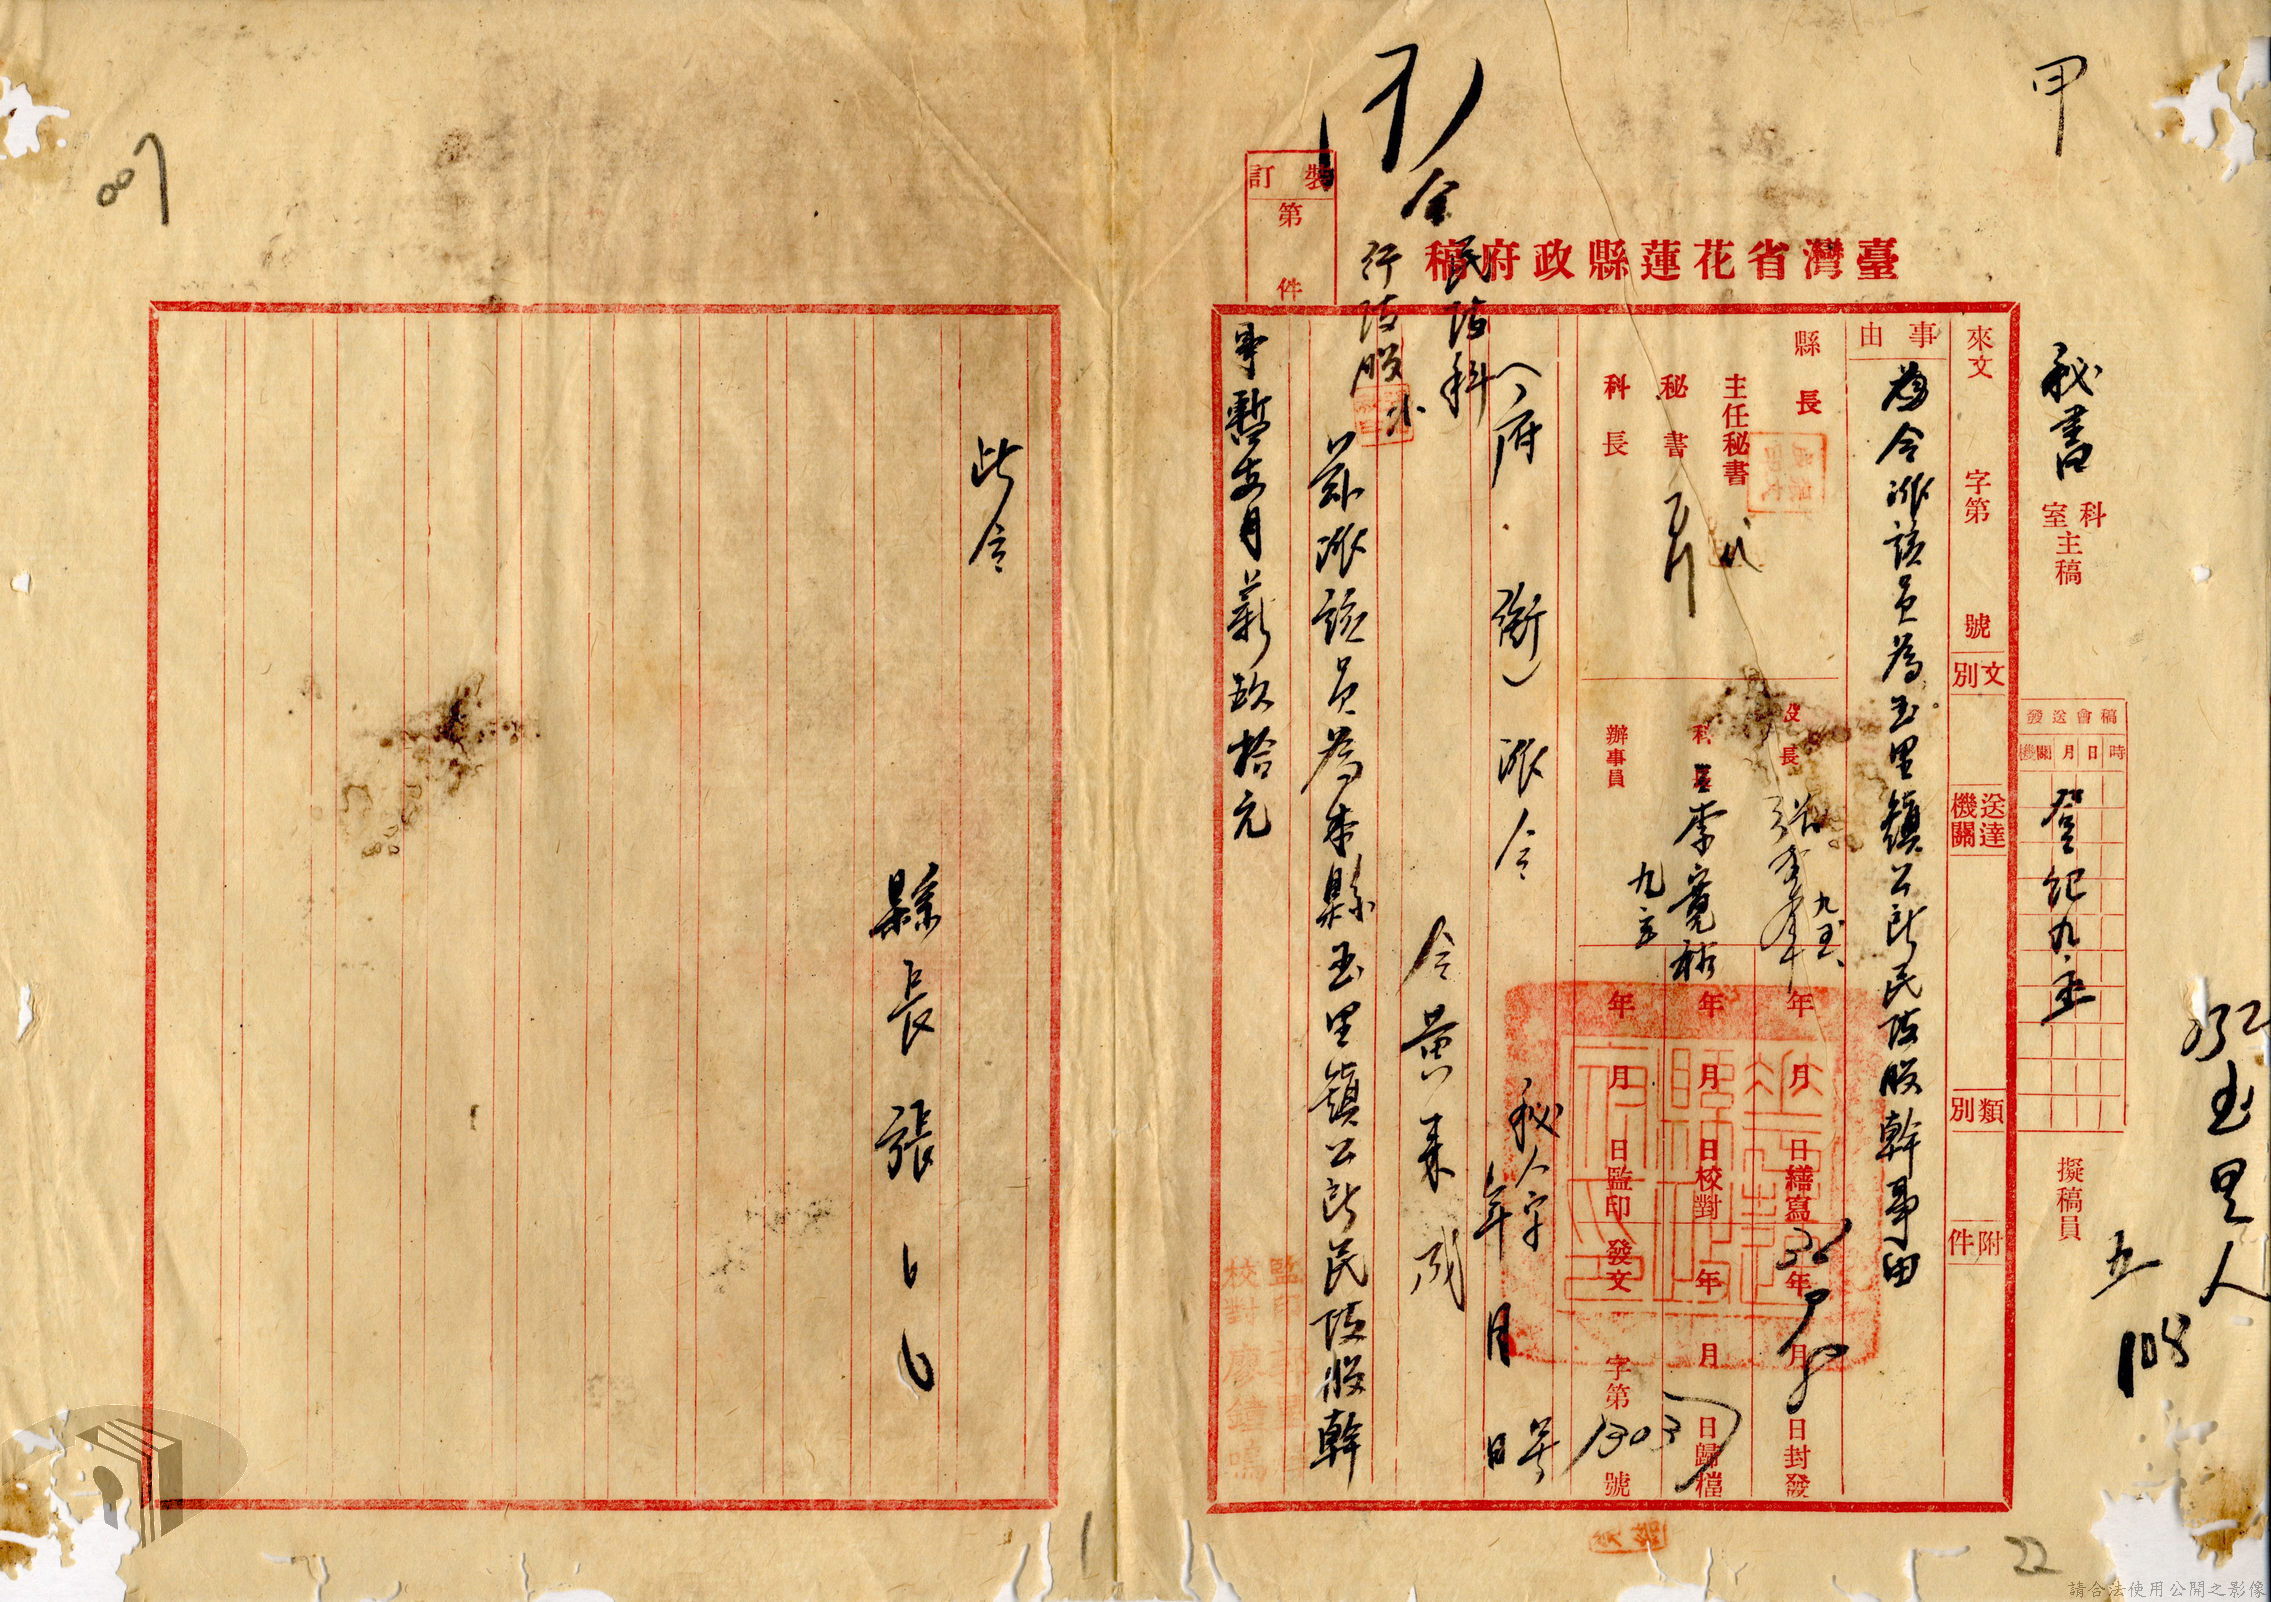 甲
紀玉里人
五
108
秘書
科室主稿
擬稿員
發送會稿
機關 月 日 時
登記九.五
臺灣省花蓮縣政府稿
來文
字第
號
文別
送達機關
類別
附件
事由
為令派該員為玉里鎮公所民政股幹事由
縣長
主任秘書
秘書
科長
代
股長
科員
辦事員
李寬裕
九.五
九.五
年 月 日繕寫
年 月 日校對
年 月 日監印
年 月 日封發
年 月 日歸檔
發文 字第 1303 號
(府.銜)派令
秘人字
號
年 月 日
令民政科
行政股
令黃秉成
茲派該員為本縣玉里鎮公所民政股幹
事暫支月薪玖拾元
裝訂
第 件
監印
校對 廖鏡鳴
此令
縣長張
007
22
請合法使用公開之影像